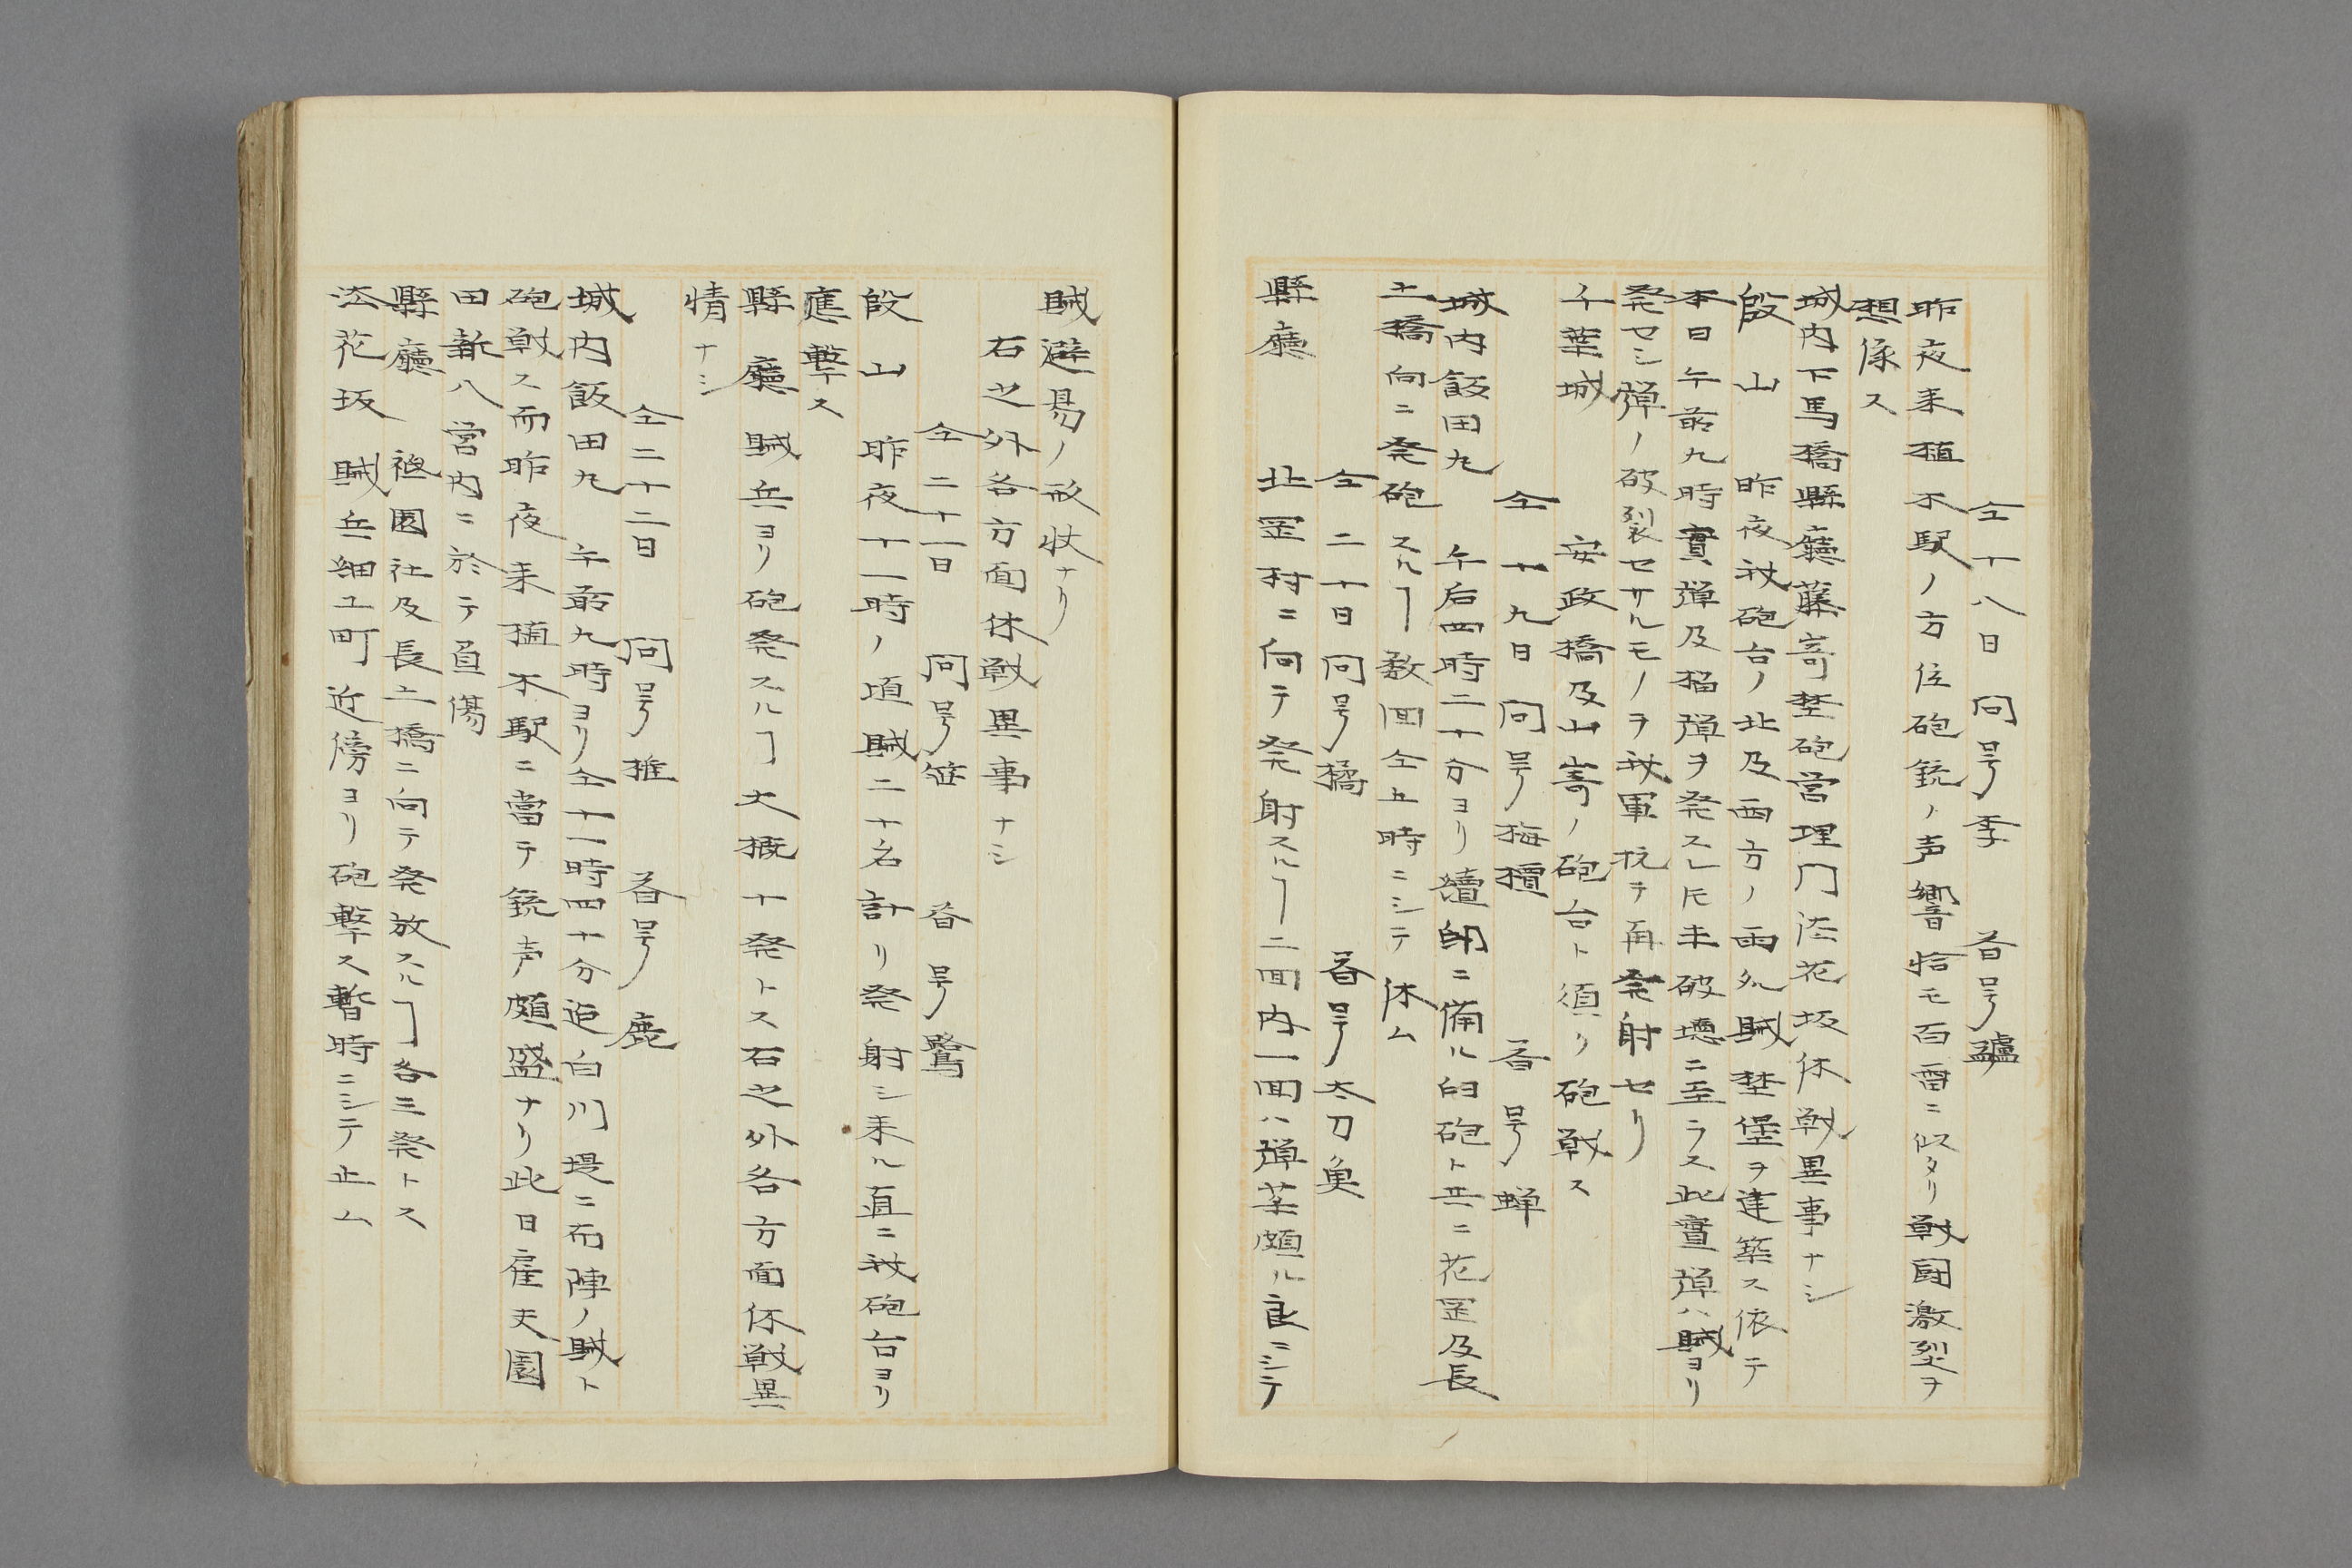 仝十八日 问号季 荅号鱸
昨夜来植木駅ノ方位砲銃ノ声響恰モ百雷ニ似タリ戦闘激裂ヲ
想像ス
城内下馬橋縣廳藤㟢埜砲営埋門法花坂休戦異事ナシ
段山 昨夜我砲台ノ北及西方ノ両処賊埜堡ヲ建築ス依テ
本日午前九時實弾及榴弾ヲ発スレ𪜈未破壊ニ至ラス此實弾ハ賊ヨリ
発セシ弾ノ破裂セサルモノヲ我軍抗テ再発射セリ
千葉城 安政橋及山㟢ノ砲台ト須ク砲戦ス
仝十九日 问号梅檀 荅号蝉
城内飯田丸 午后四時二十分ヨリ續卸ニ備ル臼砲ト共ニ花罡及長
土橋向ニ発砲スルヿ数回仝五時ニシテ休ム
仝二十日问号橘 荅号太刀魚
縣廳 北罡村ニ向テ発射スルヿ二回内一回ハ弾着頗ル良ニシテ
賊避易ノ形状ナリ
右之外各方面休戦異事ナシ
仝二十一日 问号笹 荅号鷺
段山 昨夜十一時ノ頃賊二十名計リ発射シ来ル直ニ我砲台ヨリ
應撃ス
縣廳 賊兵ヨリ砲発スルヿ大概十発トス右之外各方面休戦異
情ナシ
仝二十二日 问号椎 荅号鹿
城内飯田丸 午前九時ヨリ仝十一時四十分迄白川堤ニ布陣ノ賊ト
砲戦ス而昨夜来植木駅ニ當テ銃声頗盛ナリ此日雇夫園
田新八営内ニ於テ負傷
縣廳 祗園社及長土橋ニ向テ発放スルヿ各三発トス
法花坂 賊兵細工町近傍ヨリ砲撃ス暫時ニシテ止ム